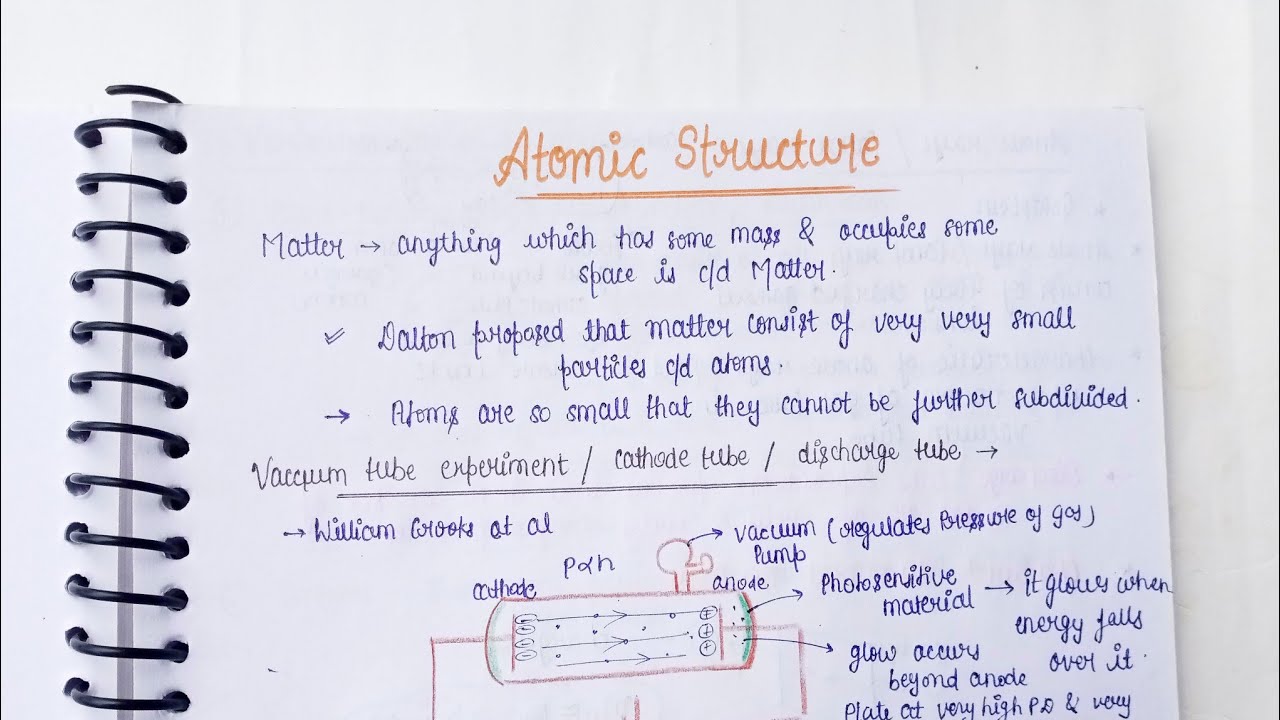 Atomic Structure
Matter → anything which has some mass & occupies some
space is c/d Matter.
✓ Dalton proposed that matter consist of very very small
particles c/d atoms.
→ Atoms are so small that they cannot be further subdivided.
Vaccum tube experiment / cathode tube / discharge tube →
→ William Crooks et al
→ vacuum (regulates Pressure of gas)
Pump
P∝n
cathode
anode
→ Photosensitive
material → it glows when
energy falls
over it.
→ glow occurs
beyond anode
Plate at very high PD & very